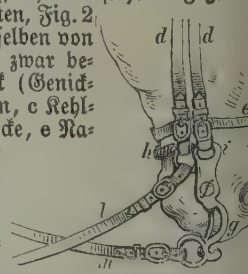 ten, Fig. 2,
selben von
zwar be-
k (Genick-
n, c Kehl-
cke, e Na-
d d
e
h i
g
l
m